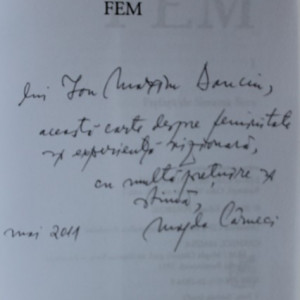 FEM
lui Ion Maxim Danciu,
această carte despre feminitate
și experiență vizionară,
cu multă prețuire și
stimă,
mai 2011 Magda Cârneci